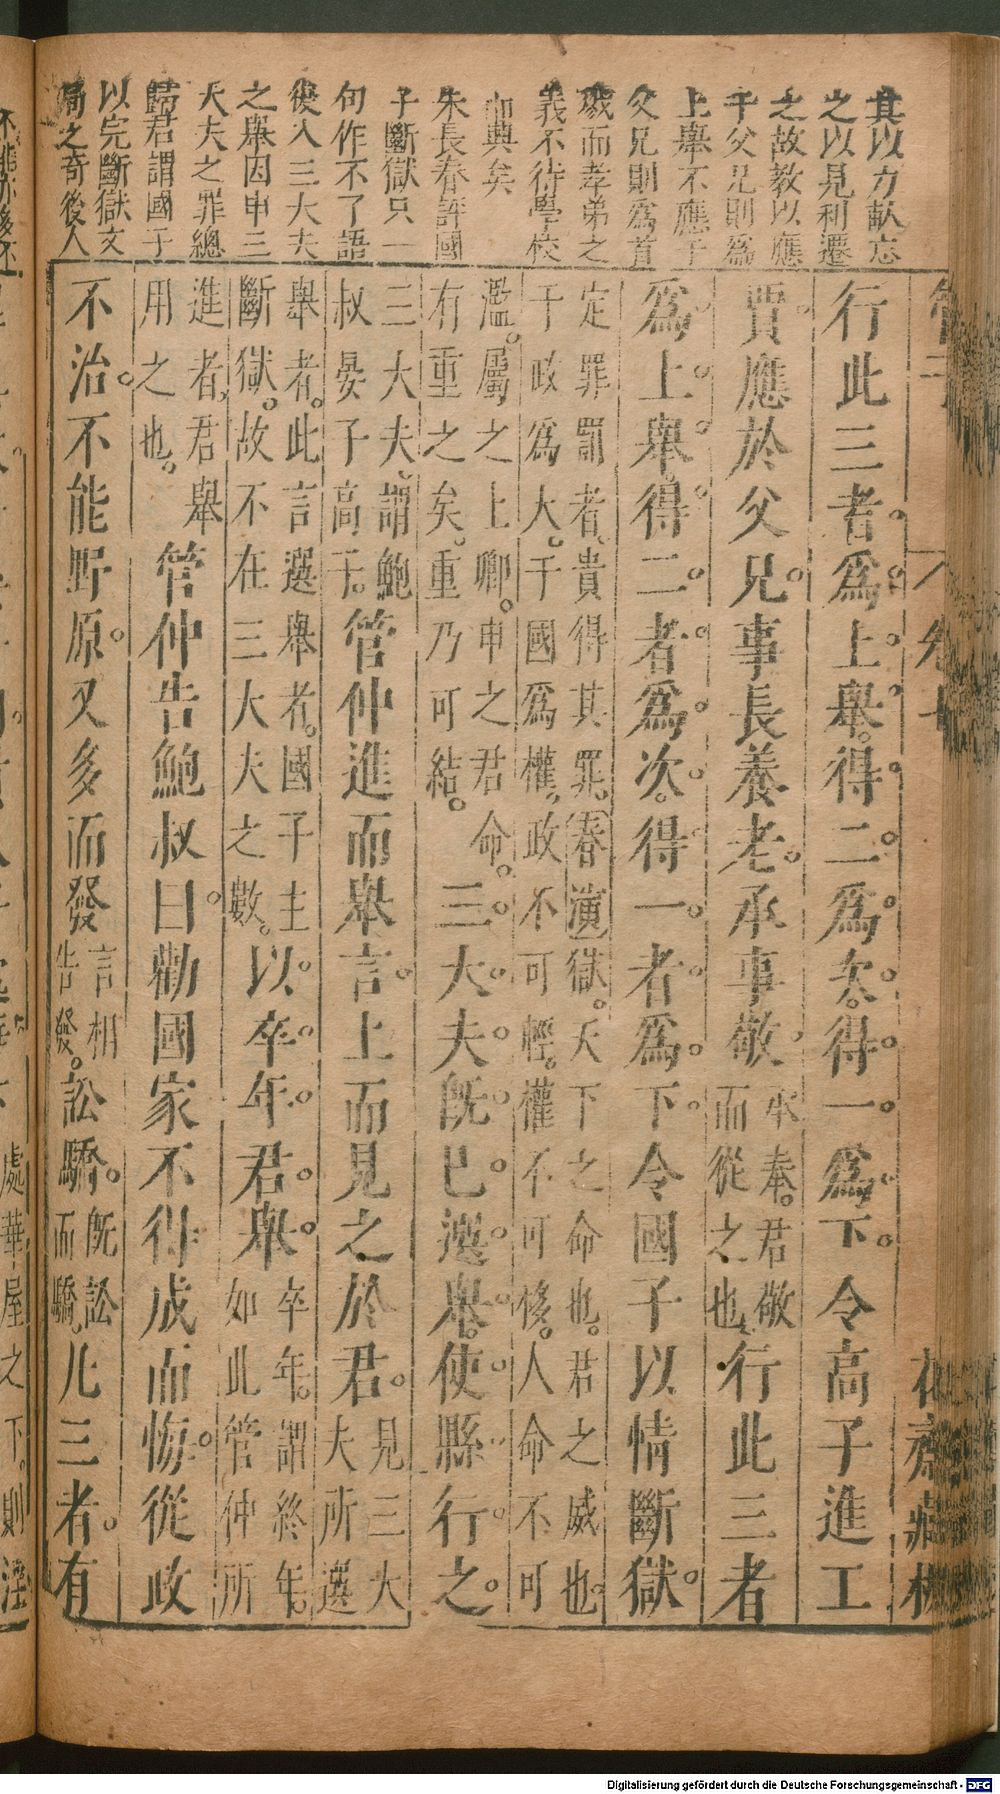 其以力畝忘
之以見利遷
之故教以應
于父兄則爲
上舉不應于
父兄則爲首
戒而孝弟之
義不待學校
而興矣
朱長春評國
子斷獄只一
句作不了語
後入三大夫
之舉因申三
大夫之罪總
歸君謂國子
以完斷獄文
局之奇後人
行此三者爲上舉得二爲次得一爲下令高子進工
賈應於父兄事長養老承事敬承奉君敬而從之也行此三者
爲上舉得二者爲次得一者爲下令國子以情斷獄
定罪罰者貴得其罪春演獄天下之命也君之威也
于政爲大于國爲權政不可輕權不可移人命不可
濫屬之上卿申之君命
有重之矣重乃可結
三大夫旣已選舉使縣行之
三大夫謂鮑
叔晏子高子
管仲進而舉言上而見之於君見三大夫所選
舉者此言選舉者國子主
斷獄故不在三大夫之數
以卒年君舉卒年謂終年如此管仲所
進者君舉
用之也
管仲告鮑叔曰勸國家不得成而悔從政
不治不能野原又多而發言相告發訟驕旣訟而驕凡三者有
管子
卷七
花齋藏板
處華屋之下則淫
Digitalisierung gefördert durch die Deutsche Forschungsgemeinschaft - DFG